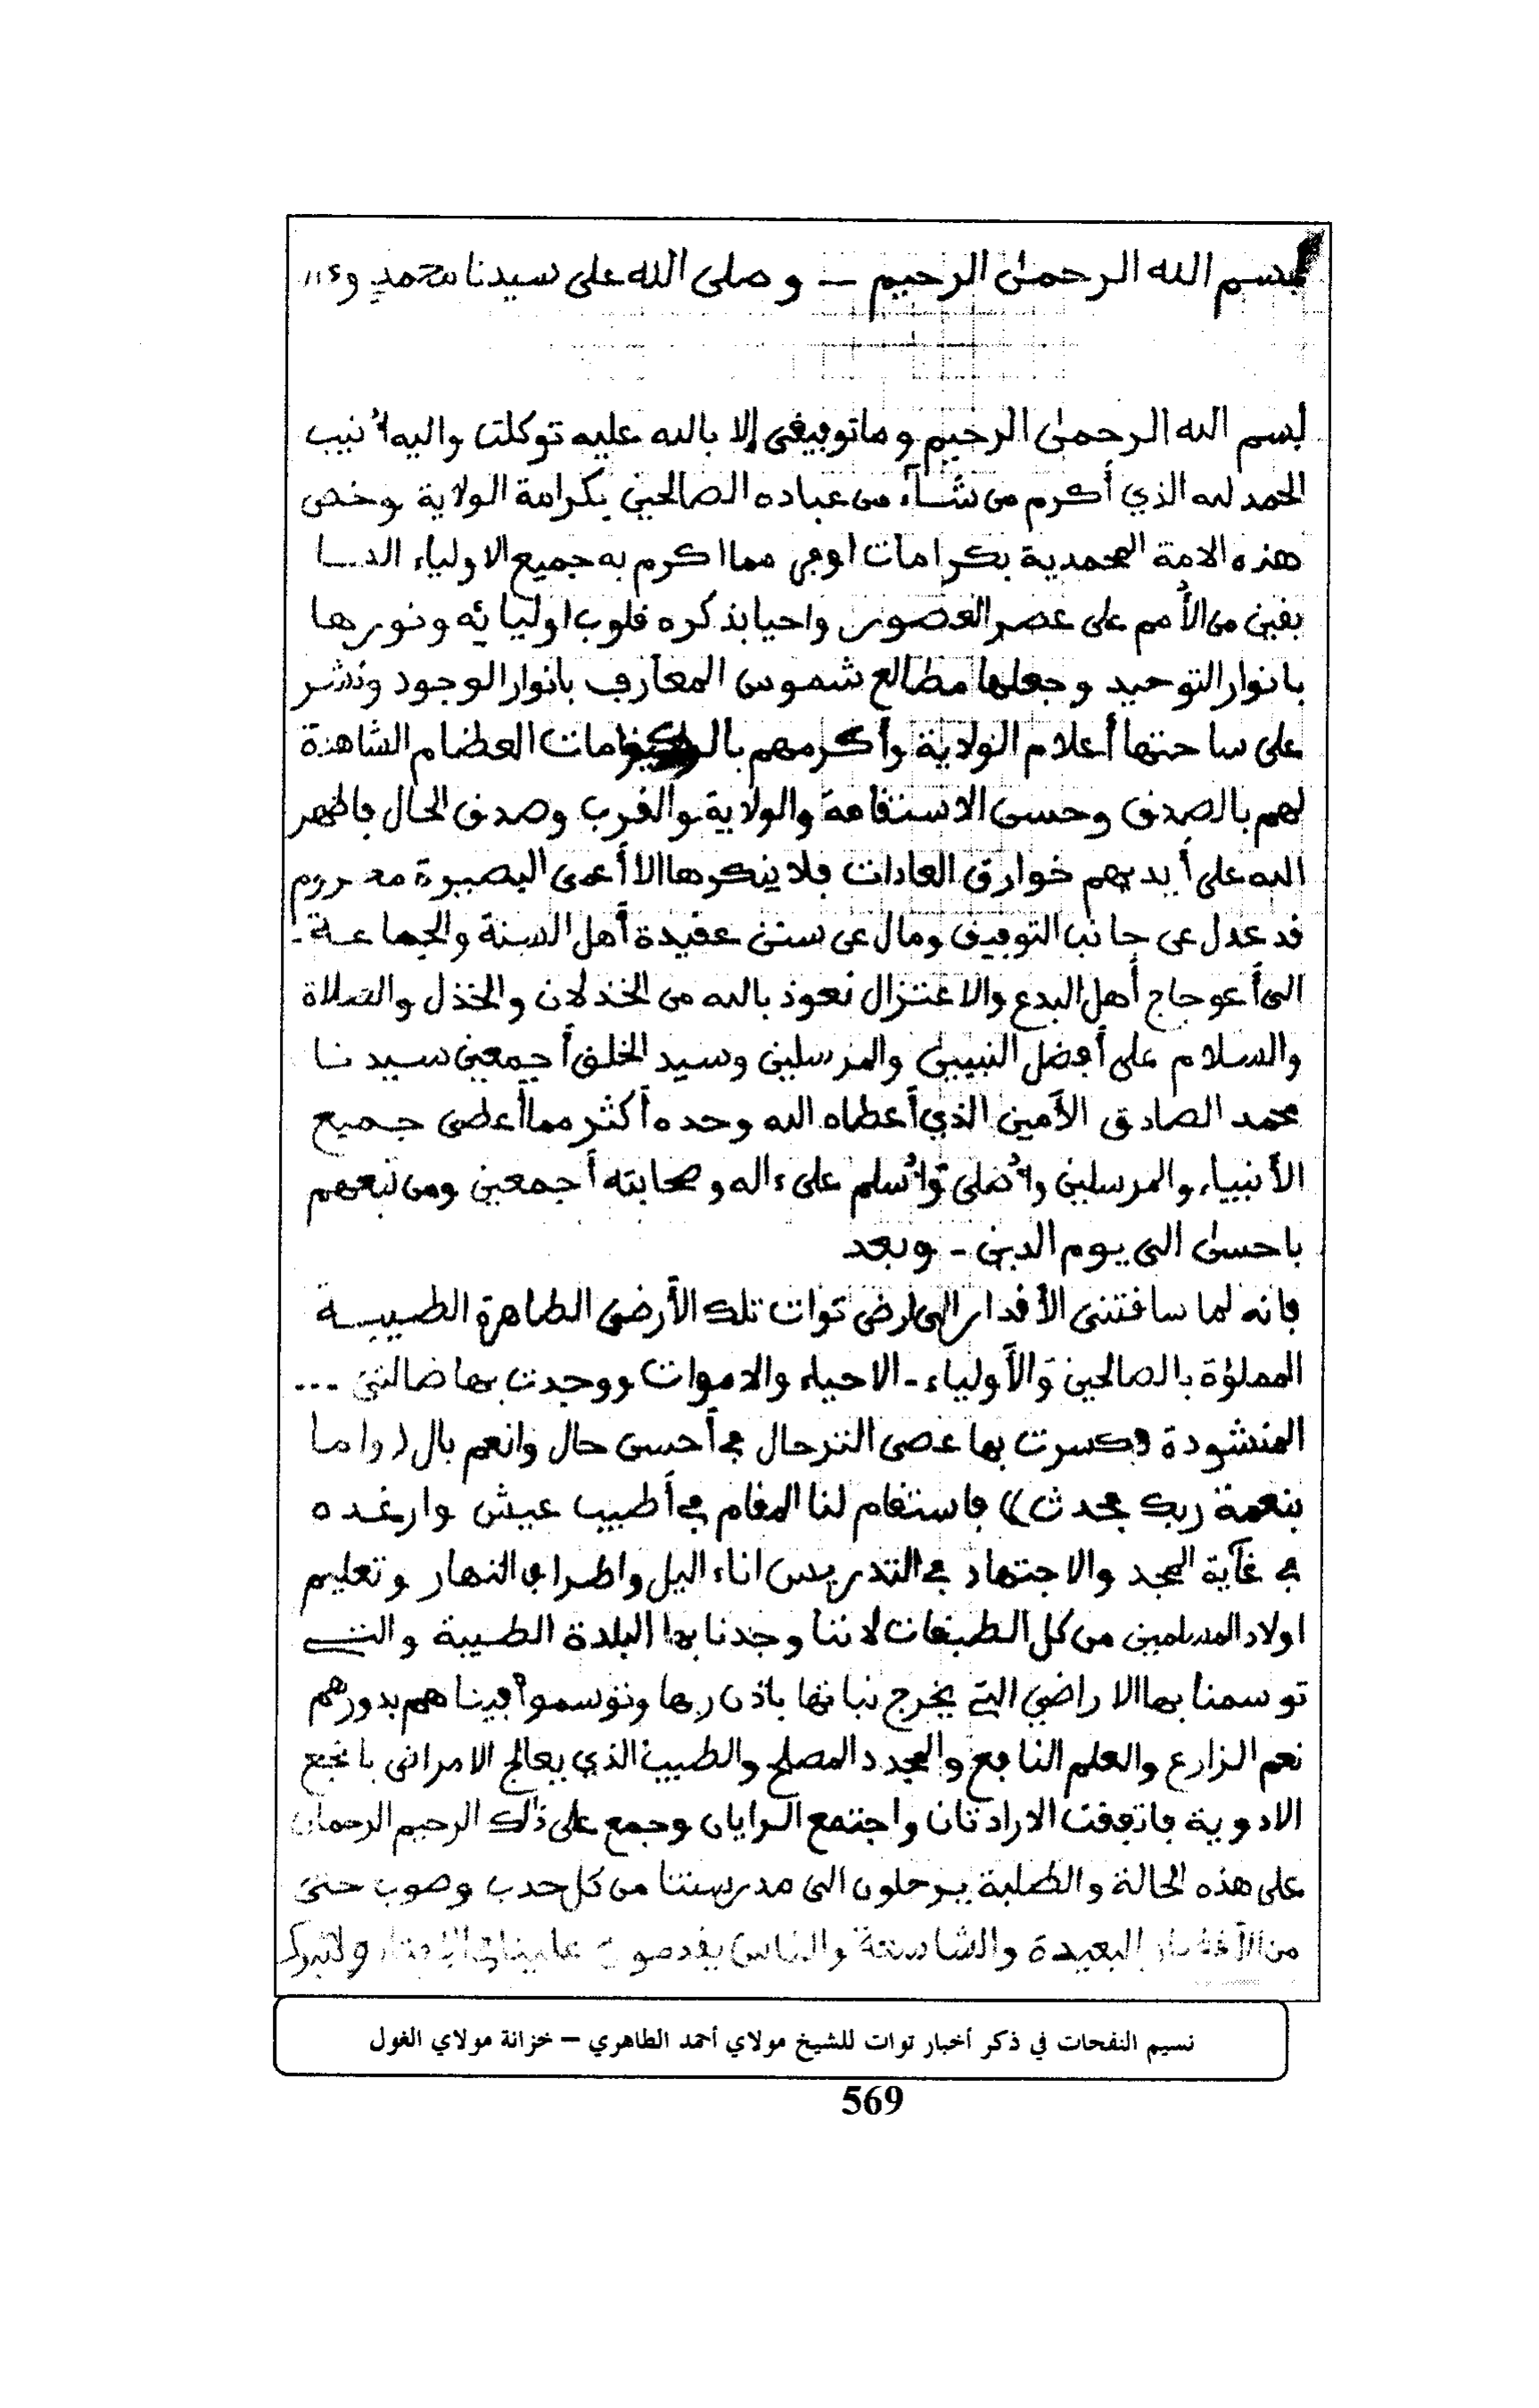 بسم الله الرحمن الرحيم — وصلى الله على سيدنا محمد وءا
بسم الله الرحمن الرحيم وما توفيقي إلا بالله عليه توكلت واليه أنيب
الحمد لله الذي أكرم من شاء من عباده الصالحين بكرامة الولاية وخص
هذه الامة المحمدية بكرامات اوفى مما اكرم به جميع الاولياء السا
بقين من الأمم على عصر العصور واحيا بذكره قلوب اوليائه ونورها
بانوار التوحيد وجعلها مطالع شموس المعارف بانوار الوجود ونشر
على ساحتها أعلام الولاية وأكرمهم بالكرامات العظام الشاهدة
لهم بالصدق وحسن الاستقامة والولاية والقرب وصدق الحال فاظهر
الله على أيديهم خوارق العادات فلا ينكرها الا أعمى البصيرة محروم
قد عدل عن جانب التوفيق ومال عن سنن عقيدة أهل السنة والجماعة -
الى أعوجاج أهل البدع والاعتزال نعوذ بالله من الخذلان والخذل والصلاة
والسلام على أفضل النبيين والمرسلين وسيد الخلق أجمعين سيدنا
محمد الصادق الأمين الذي أعطاه الله وحده أكثر مما أعطى جميع
الأنبياء والمرسلين وأصلى وأسلم على ءاله وصحابته أجمعين ومن تبعهم
باحسن الى يوم الدين - وبعد
فانه لما ساقتنى الأقدار الى ارض توات تلك الأرض الطاهرة الطيبة
المملؤة بالصالحين والأولياء - الاحياء والاموات ووجدت بها ضالتي ...
المنشودة وكسرت بها عصى الترحال في أحسن حال وانعم بال (واما
بنعمة ربك فحدث)) فاستقام لنا المقام في أطيب عيش وارغده
في غاية المجد والاجتهاد في التدريس اناء اليل واطراف النهار وتعليم
اولاد المسلمين من كل الطبقات لاننا وجدنا بها البلدة الطيبة والتي
توسمنا بها الاراضي التي يخرج نباتها باذن ربها وتوسموا فينا هم بدورهم
نعم الزارع والعلم النافع والمجدد المصلح والطبيب الذي يعالج الامراض بانجع
الادوية فاتفقت الارادتان واجتمع الرايان وجمع على ذلك الرحيم الرحمان
على هذه الحالة والطلبة يرحلون الى مدرستنا من كل حدب وصوب حتى
من الأقطار البعيدة والشاسعة والناس يقدمون علينا
نسيم النفحات في ذكر أخبار توات للشيخ مولاي أحمد الطاهري – خزانة مولاي الغول
569